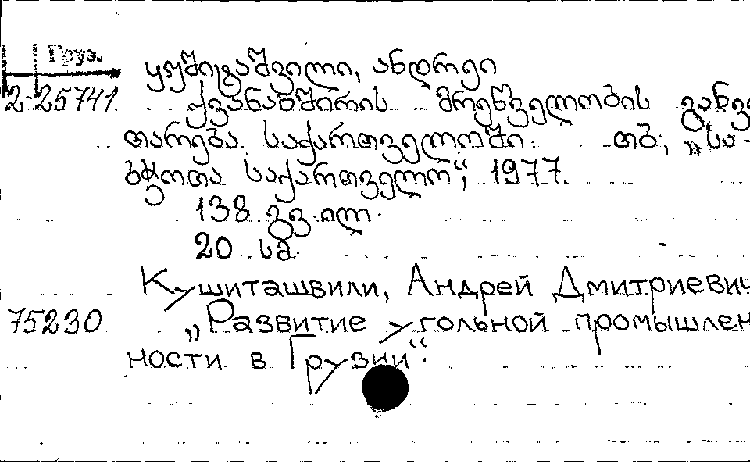 Груз.
ყუშიტაშვილი, ანდრეი
2-25741 ქვანახშირის მრეწველობის განვი
თარება საქართველოში. თბ., „სა-
ბჭოთა საქართველო“, 1977.
138 გვ. ილ.
20 სმ.
Кушиташвили, Андрей Дмитриевич
75230 „Развитие угольной промышлен
ности в Грузии“.